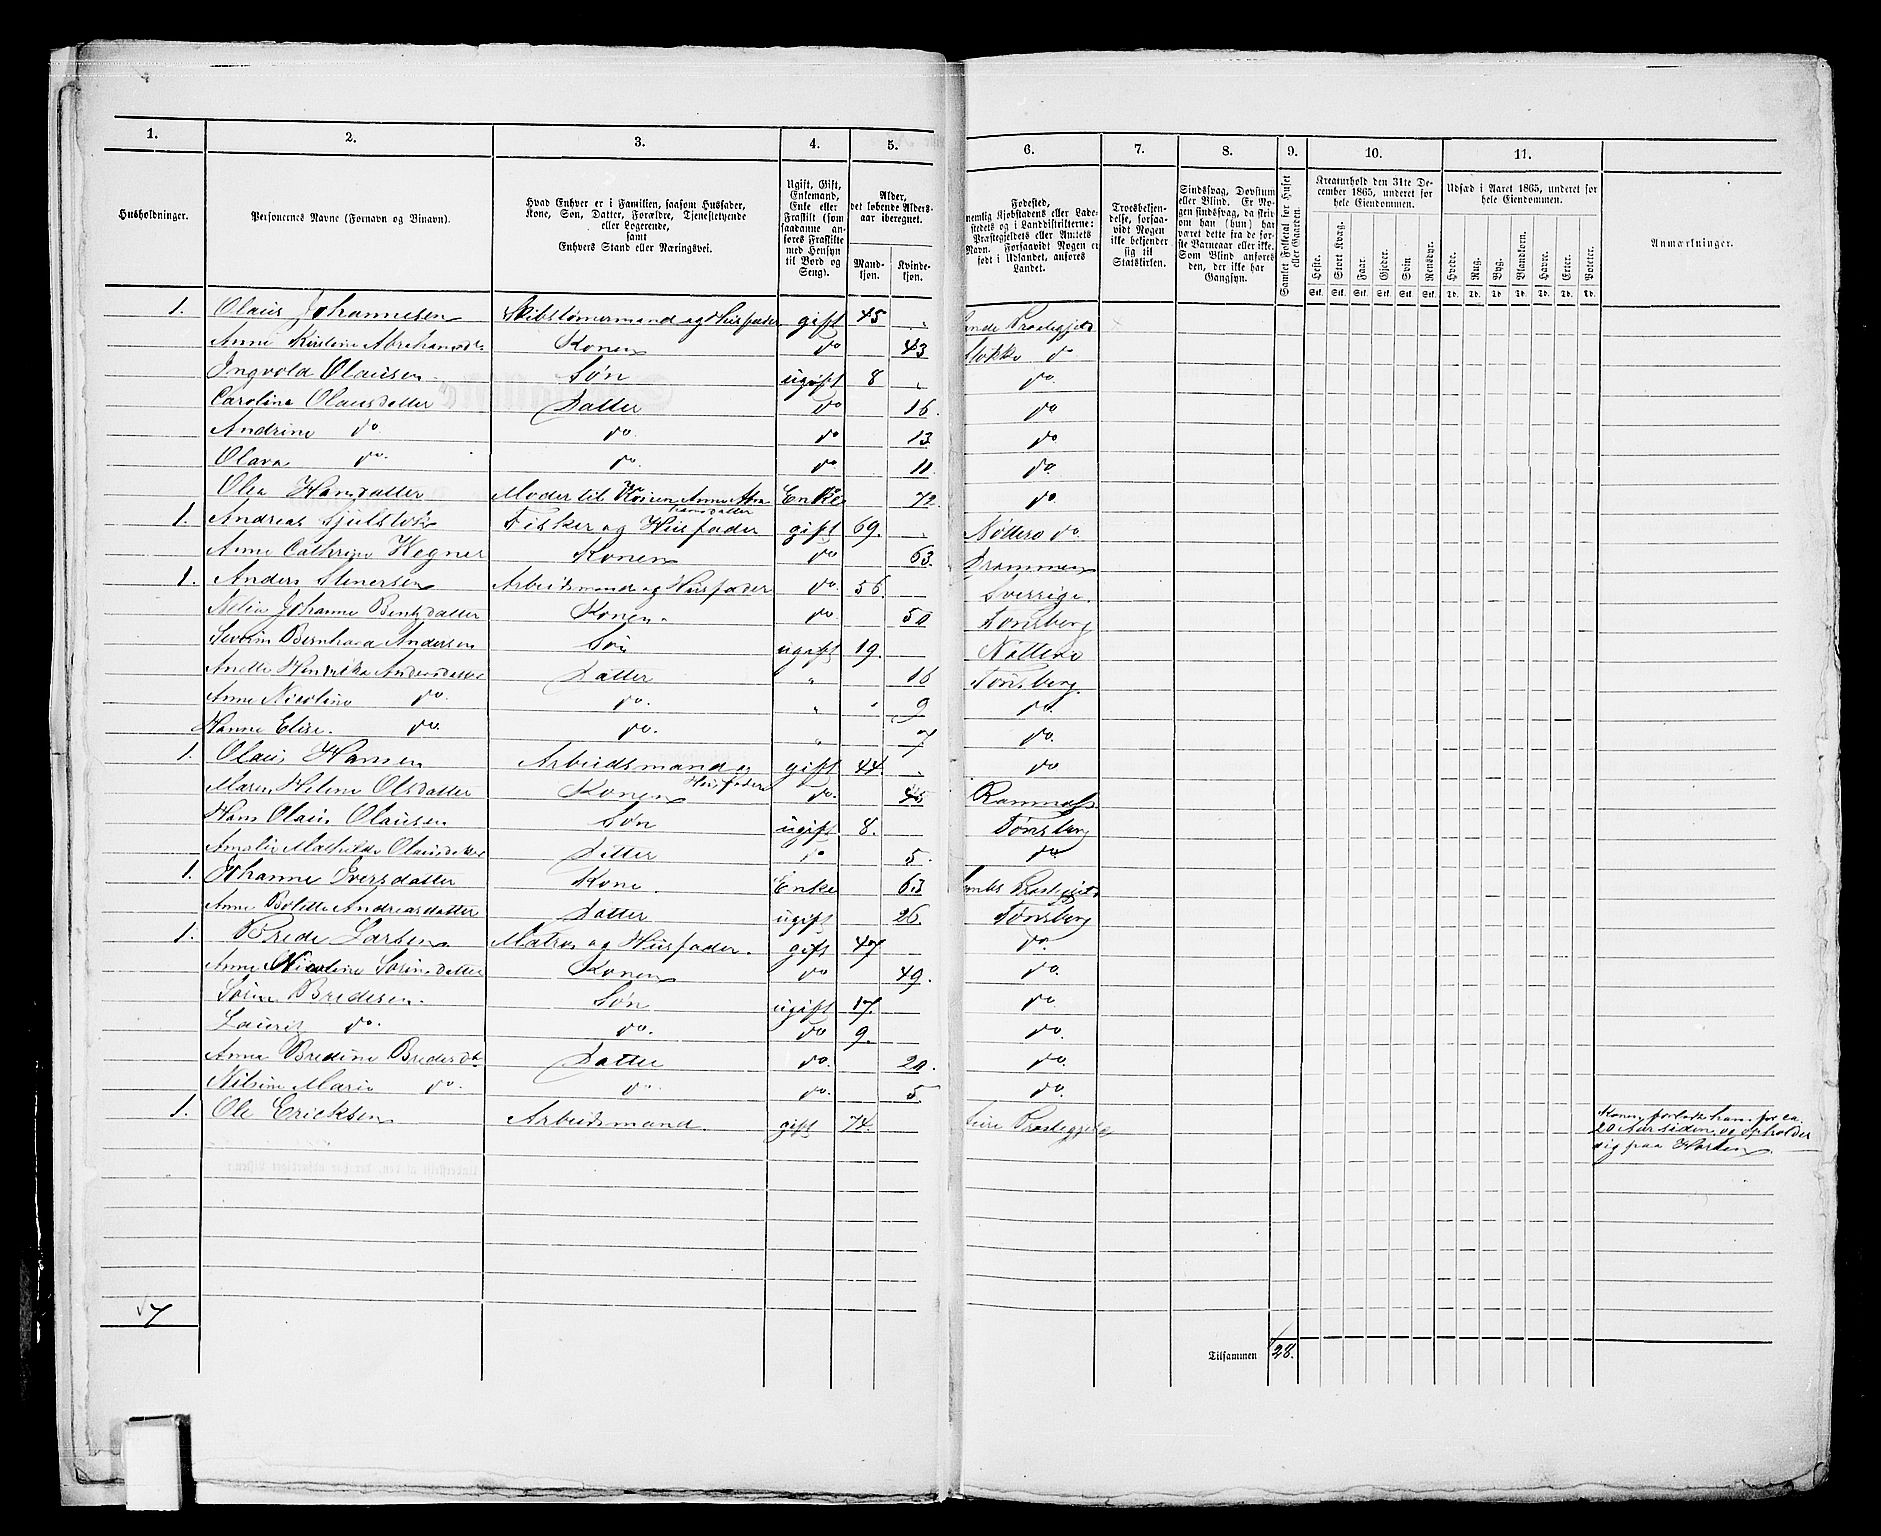 1. 2. 3. 4. 5. 6. 7. 8. 9. 10. 11.
Husholdninger.
Personernes Navne (Fornavn og Binavn).
Hvad Enhver er i Familien, saasom Husfader,
Kone, Søn, Datter, Forældre, Tjenestetyende
eller Logerende,
samt
Enhvers Stand eller Næringsvei.
Ugift, Gift,
Enkemand,
Enke eller
Fraskilt (som
saadanne an-
føres Fraskilte
med Hensyn
til Bord og
Seng).
Alder,
det løbende Alders-
aar iberegnet.
Mand-
kjøn.
Kvinde-
kjøn.
Fødested,
nemlig Kjøbstadens eller Lade-
stedets og i Landdistrikterne:
Præstegjeldets eller Amtets
Navn. Forsaavidt Nogen er
født i Udlandet, anføres
Landet.
Troesbekjen-
delse, forsaa-
vidt Nogen
ikke bekjender
sig til
Statskirken.
Sindssvag, Døvstum
eller Blind. Er No-
gen sindssvag, da skrives
om han (hun) har
været dette fra de før-
ste Barneaar eller ikke.
Som Blind anføres
den, der ikke har
Gangsyn.
Samlet Folketal for Huset
eller Gaarden.
Kreaturhold den 31te De-
cember 1865, underet for
hele Eiendommen.
Heste. Stort Kvæg. Faar. Gjeder. Svin. Rensdyr.
Stk. Stk. Stk. Stk. Stk. Stk.
Udsæd i Aaret 1865, underet for
hele Eiendommen.
Hvede. Rug. Byg. Blandkorn. Havre. Erter. Poteter.
Td. Td. Td. Td. Td. Td. Td.
Anmærkninger.
1. Olaus Johannesen Skibstømermand og Husfader gift 45 " Præstegjeld
Anne Kirstine Abrahamsdtr Konen do 43 Stokke do
Ingvold Olausen. Søn ugift 8 " do
Caroline Olausdatter Datter do 16. do
Andrine do do. do 13 do
Olava do. do. do 11. do
Olea Hansdatter Moder til Konen Anne Abra
hamsdatter Enke 72. do
1. Andreas Fisker og Husfader gift 69. " Nøtterø do.
Anne Cathrine Wegner Konen do 63. Drammen
1. Anders Stenersen Arbeidsmand og Husfader do. 56. Sverrige.
Johanne Bentsdatter Konen. do 50 Tønsberg
Severin Bernhard Andersen Søn ugift 19. Nøtterø
Anette Hendrikke Andersdatter Datter " 16 Tønsberg.
Anne Nicoline do. do. " 9 do.
Hanne Elise. do. do. " 7 do.
1. Olaus Hansen Arbeidsmand og
Husfader gift 44. " do
Maren Helene Olsdatter Konen do. 45 Ramnæs
Hans Olaus Olausen Søn ugift 8. Tønsberg
Amalie Mathilde Olausdatter Datter do 5. do.
1. Johanne Iversdatter Kone. Enke 63 Præstegjeld
Anne Bolette Andreasdatter Datter ugift 26. Tønsberg
1. Brede Larsen. Matros og Husfader. gift 47 do.
Anne Nicoline Sørensdatter Konen do 49. do.
Søren Bredesen. Søn ugift 17. do.
Lauritz do. do. do 9. do.
Anna Bredine Bredesdt. Datter do. 20. do.
Nilsine Marie do. do. do. 5. do.
1. Ole Ericksen Arbeidsmand. gift 74. Præstegjeld
Konen forlod ham for ca
20 Aar siden og opholder
sig paa Horten
7
Tilsammen 28.